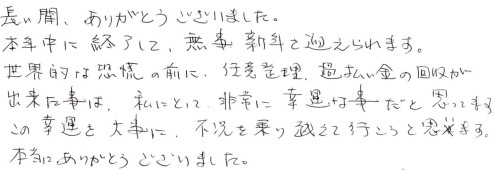 長い間、ありがとうございました。
本年中に終了して、無事新年を迎えられます。
世界的な恐慌の前に、任意整理、過払い金の回収が
出来た事は、私にとって非常に幸運な事だと思ってます。
この幸運を大事に、不況を乗り越えて行こうと思います。
本当にありがとうございました。